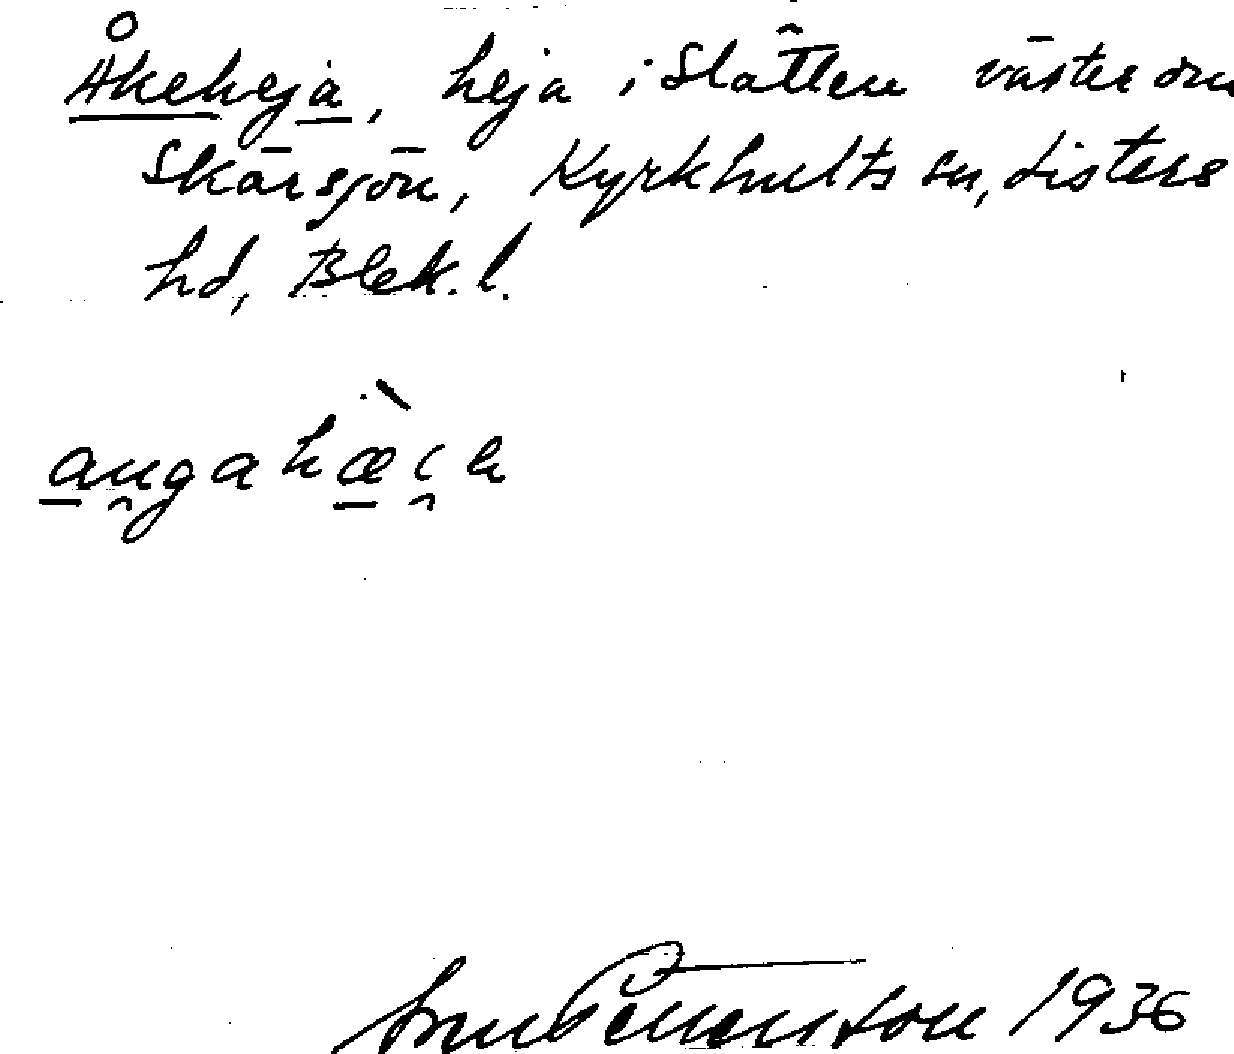 Åkeheja, heja i Slåtten väster om
Skärsjön, Kyrkhults sn, Listers
hd, Blek. l.
1936